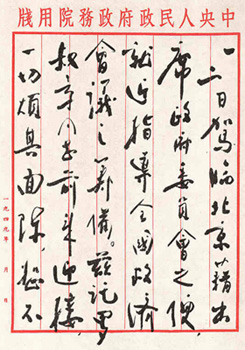 中央人民政府政務院用牋
一二日駕臨北京，藉出
席政府委員會之便，
就近指導全國救濟
會議之籌備。茲託羅
叔章同志前來迎接，
一切煩其面陳，恕不
一九四九年 月 日